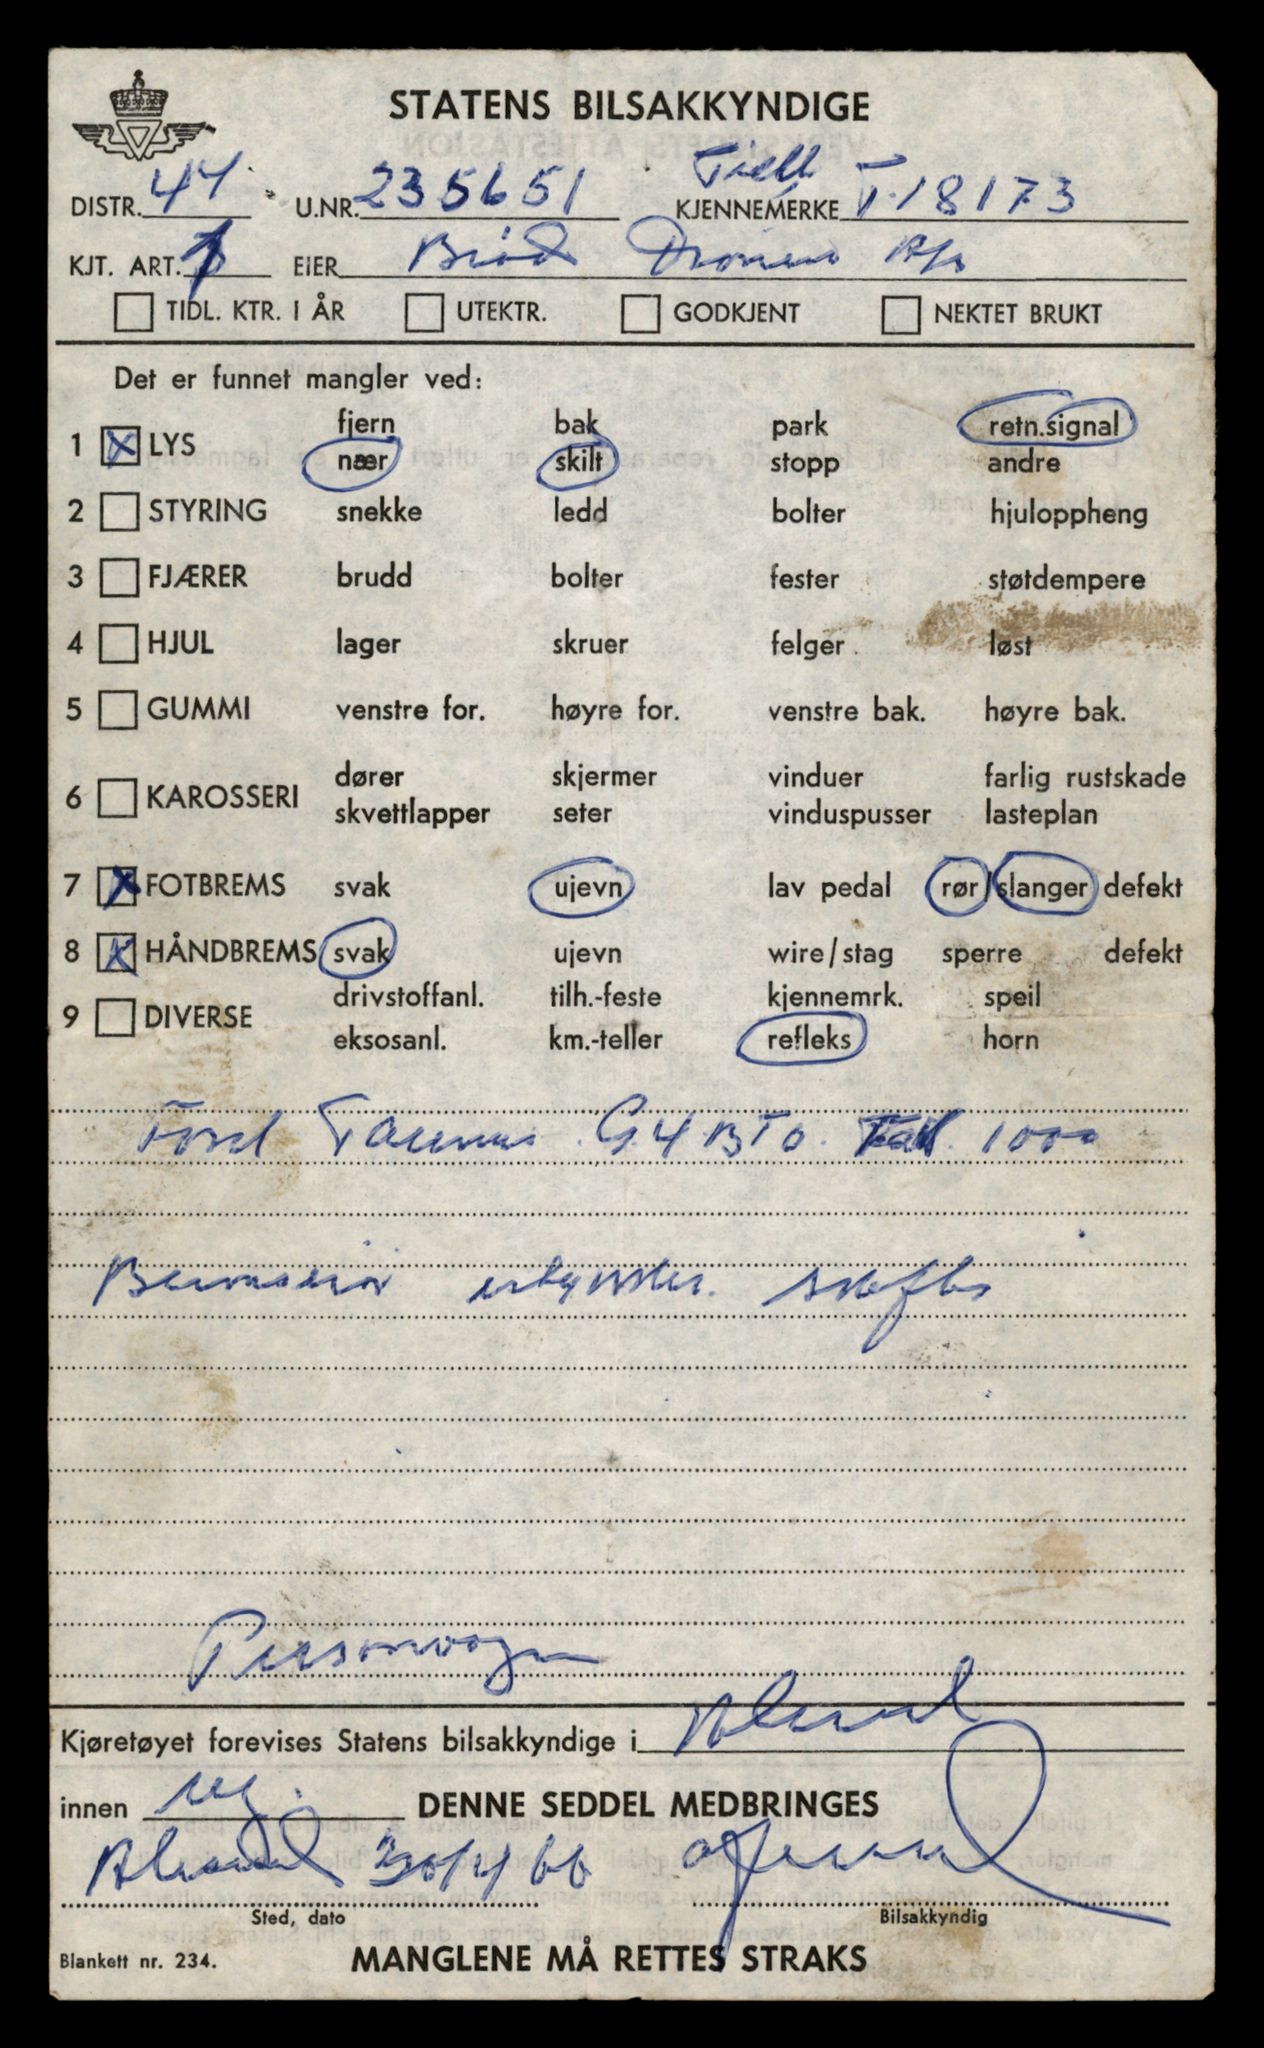 STATENS BILSAKKYNDIGE
DISTR. 44 U.NR. 235651 KJENNEMERKE T-18173
KJT. ART. 1 EIER Brød
TIDL. KTR. I ÅR UTEKTR. GODKJENT NEKTET BRUKT
Det er funnet mangler ved:
fjern bak park retn.signal
1 X LYS
nær skilt stopp andre
2 STYRING snekke ledd bolter hjuloppheng
3 FJÆRER brudd bolter fester støtdempere
4 HJUL lager skruer felger løst
5 GUMMI venstre for. høyre for. venstre bak. høyre bak.
dører skjermer vinduer farlig rustskade
6 KAROSSERI
skvettlapper seter vinduspusser lasteplan
7 X FOTBREMS svak ujevn lav pedal rør/slanger defekt
8 X HÅNDBREMS svak ujevn wire/stag sperre defekt
drivstoffanl. tilh.-feste kjennemrk. speil
9 DIVERSE
eksosanl. km.-teller refleks horn
Ford Taunus G4BTO 1000
Personvogn
Kjøretøyet forevises Statens bilsakkyndige i Ålesund
innen DENNE SEDDEL MEDBRINGES
Ålesund 30/4 66
Sted, dato Bilsakkyndig
Blankett nr. 234. MANGLENE MÅ RETTES STRAKS